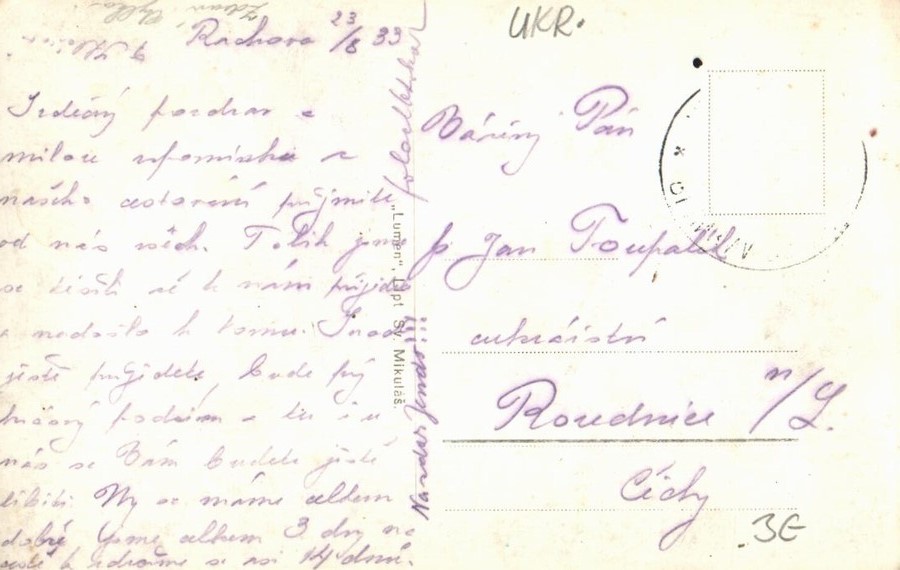 UKR.
Rachovo 23/8 33
Srdečný pozdrav a
milou vzpomínku z
našeho cestování přijměte
od nás všech. Tolik jsme
se těšili až k nám přijdete
a nedošlo k tomu. Snad
ještě přijdete, bude prý
podzim a
nás se Vám bude ještě
líbiti. My se máme celkem
dobře. Jsme celkem 3 dny na
cestě k zdržíme se asi 14 dnů.
Nazdar Jendo!!!
"Lumen", Lipt. Sv. Mikuláš.
Vážený Pán
p. Jan Toupalík
cukrářství
Roudnice n/L.
Čechy
3E